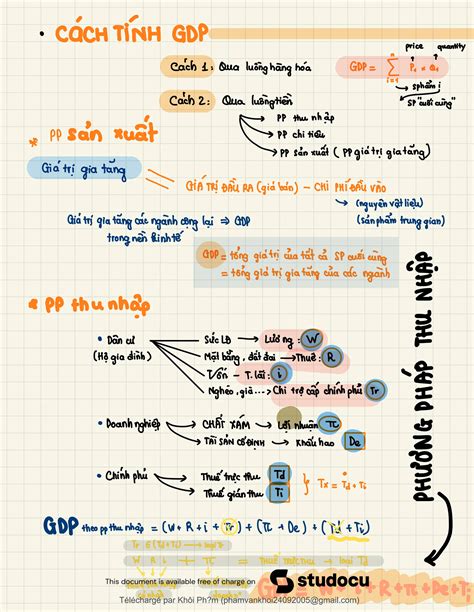 • CÁCH TÍNH GDP
price quantity
Cách 1: Qua luồng hàng hóa
GDP = Σ Pi × Qi
n
i=1
SP "cuối cùng"
Cách 2: Qua luồng tiền
PP thu nhập
PP chi tiêu
PP sản xuất (PP giá trị gia tăng)
* PP sản xuất
Giá trị gia tăng
GIÁ TRỊ ĐẦU RA (giá bán) – CHI PHÍ ĐẦU VÀO
(nguyên vật liệu)
(sản phẩm trung gian)
Giá trị gia tăng các ngành cộng lại ⇒ GDP
trong nền kinh tế
GDP = tổng giá trị của tất cả SP cuối cùng
= tổng giá trị gia tăng của các ngành
* PP thu nhập
PHƯƠNG PHÁP THU NHẬP
• Dân cư
(Hộ gia đình)
Sức LĐ → Lương : W
Mặt bằng, đất đai → Thuê : R
Vốn – T. lãi : i
Nghèo, già... → Chi trợ cấp chính phủ Tr
• Doanh nghiệp
CHẤT XÁM → Lợi nhuận π
TÀI SẢN CỐ ĐỊNH → Khấu hao De
• Chính phủ
Thuế trực thu Td
Thuế gián thu Ti
} Tx = Td + Ti
GDP theo pp thu nhập = (W + R + i + Tr) + (π + De) + (Td + Ti)
This document is available free of charge on
studocu
Téléchargé par Khôi Ph?m (phamvankhoi24092005@gmail.com)